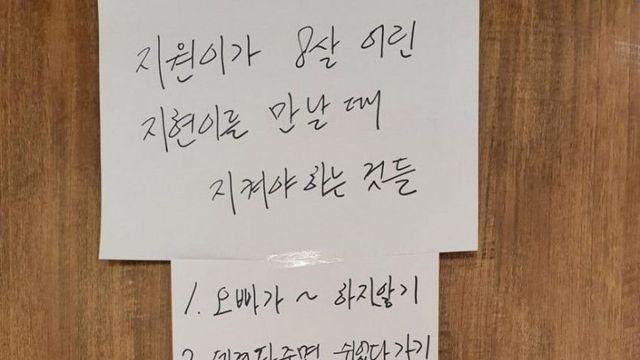 지원이가 8살 어린
지현이를 만날 때
지켜야하는 것들
1. 오빠가 ~ 하지않기
2. 데려다주면 쉬었다가기